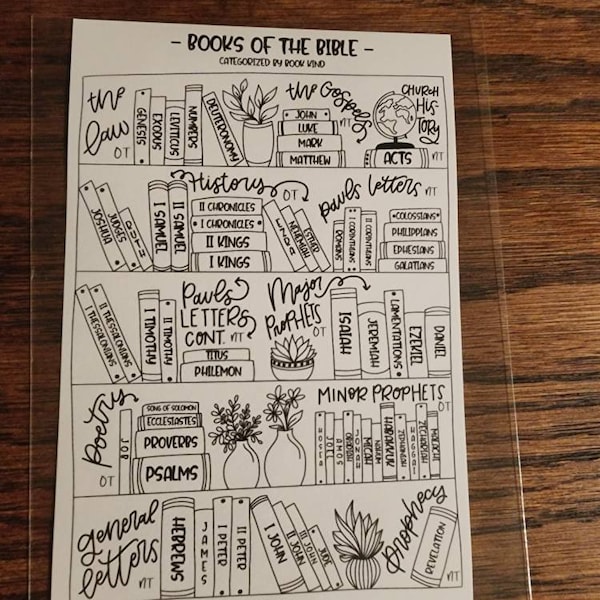 - BOOKS OF THE BIBLE -
CATEGORIZED BY BOOK KIND
the law
OT
GENESIS
EXODUS
LEVITICUS
NUMBERS
DEUTERONOMY
the Gospels
NT
JOHN
LUKE
MARK
MATTHEW
CHURCH HIS-TORY
NT
ACTS
History
OT
JOSHUA
JUDGES
RUTH
I SAMUEL
II SAMUEL
II CHRONICLES
I CHRONICLES
II KINGS
I KINGS
EZRA
NEHEMIAH
ESTHER
pauls letters
NT
ROMANS
I CORINTHIANS
II CORINTHIANS
COLOSSIANS
PHILIPPIANS
EPHESIANS
GALATIANS
I THESSALONIANS
II THESSALONIANS
I TIMOTHY
II TIMOTHY
Pauls
LETTERS
CONT.
NT
TITUS
PHILEMON
Major
PROPHETS
OT
ISAIAH
JEREMIAH
LAMENTATIONS
EZEKIEL
DANIEL
Poetry
OT
JOB
SONG OF SOLOMON
ECCLESIASTES
PROVERBS
PSALMS
MINOR PROPHETS
OT
HOSEA
JOEL
AMOS
OBADIAH
JONAH
MICAH
NAHUM
HABAKKUK
ZEPHANIAH
HAGGAI
ZECHARIAH
MALACHI
general
letters
NT
HEBREWS
JAMES
I PETER
II PETER
I JOHN
II JOHN
III JOHN
JUDE
prophecy
REVELATION
NT